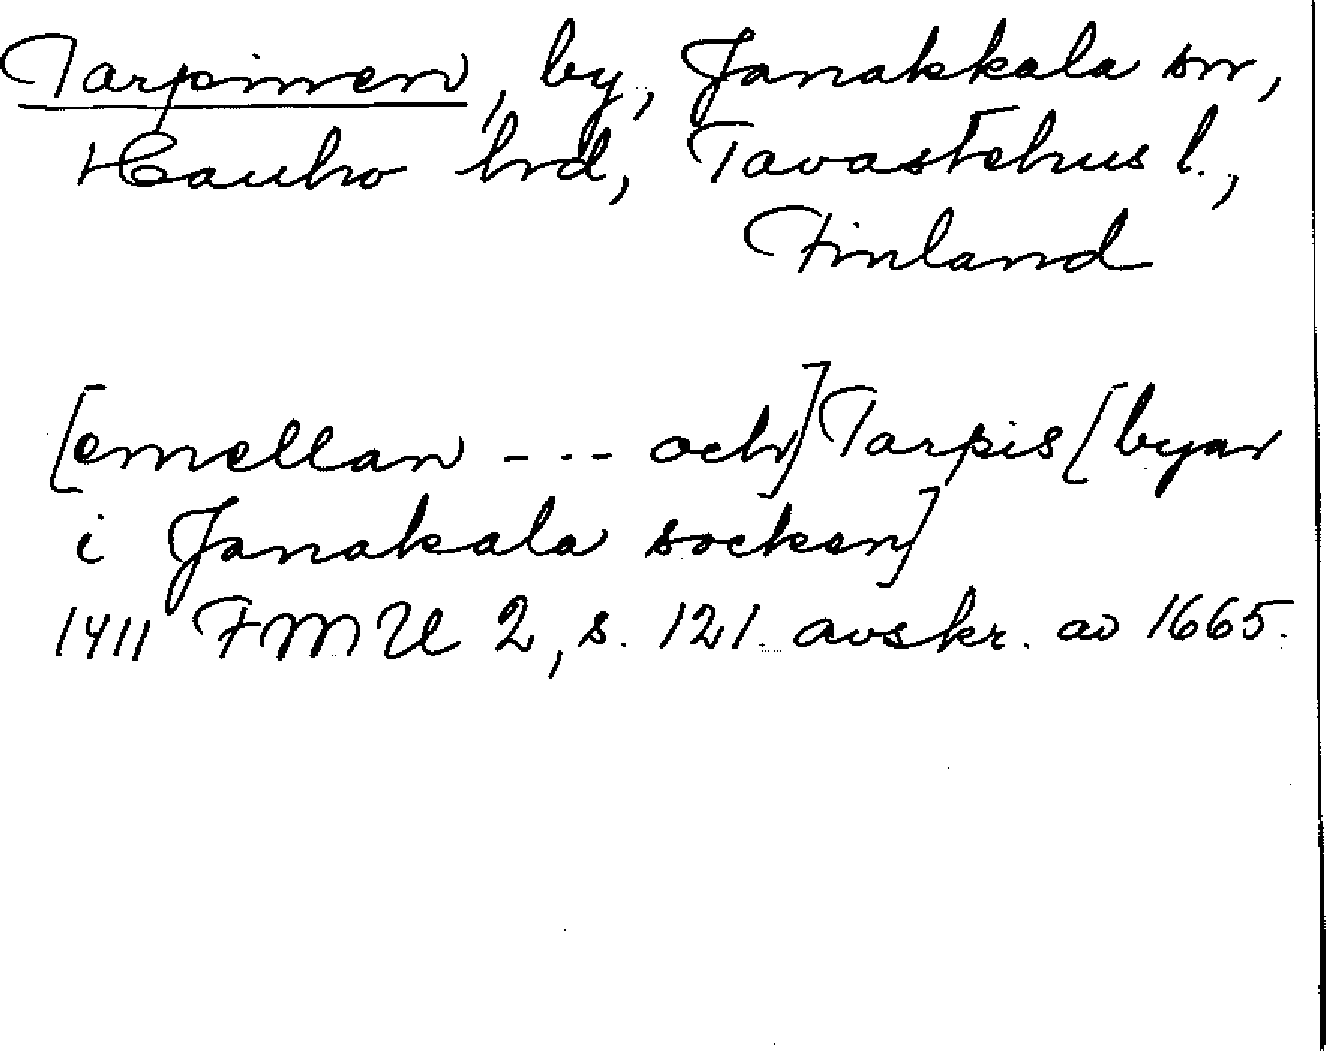 Tarpinen, by, Janakkala sn,
Hauho hrd, Tavastehus l.,
Finland
[emellan - - - och] Tarpis [byar
i Janakala socken]
1411 FMU 2, s. 121. avskr. av 1665.